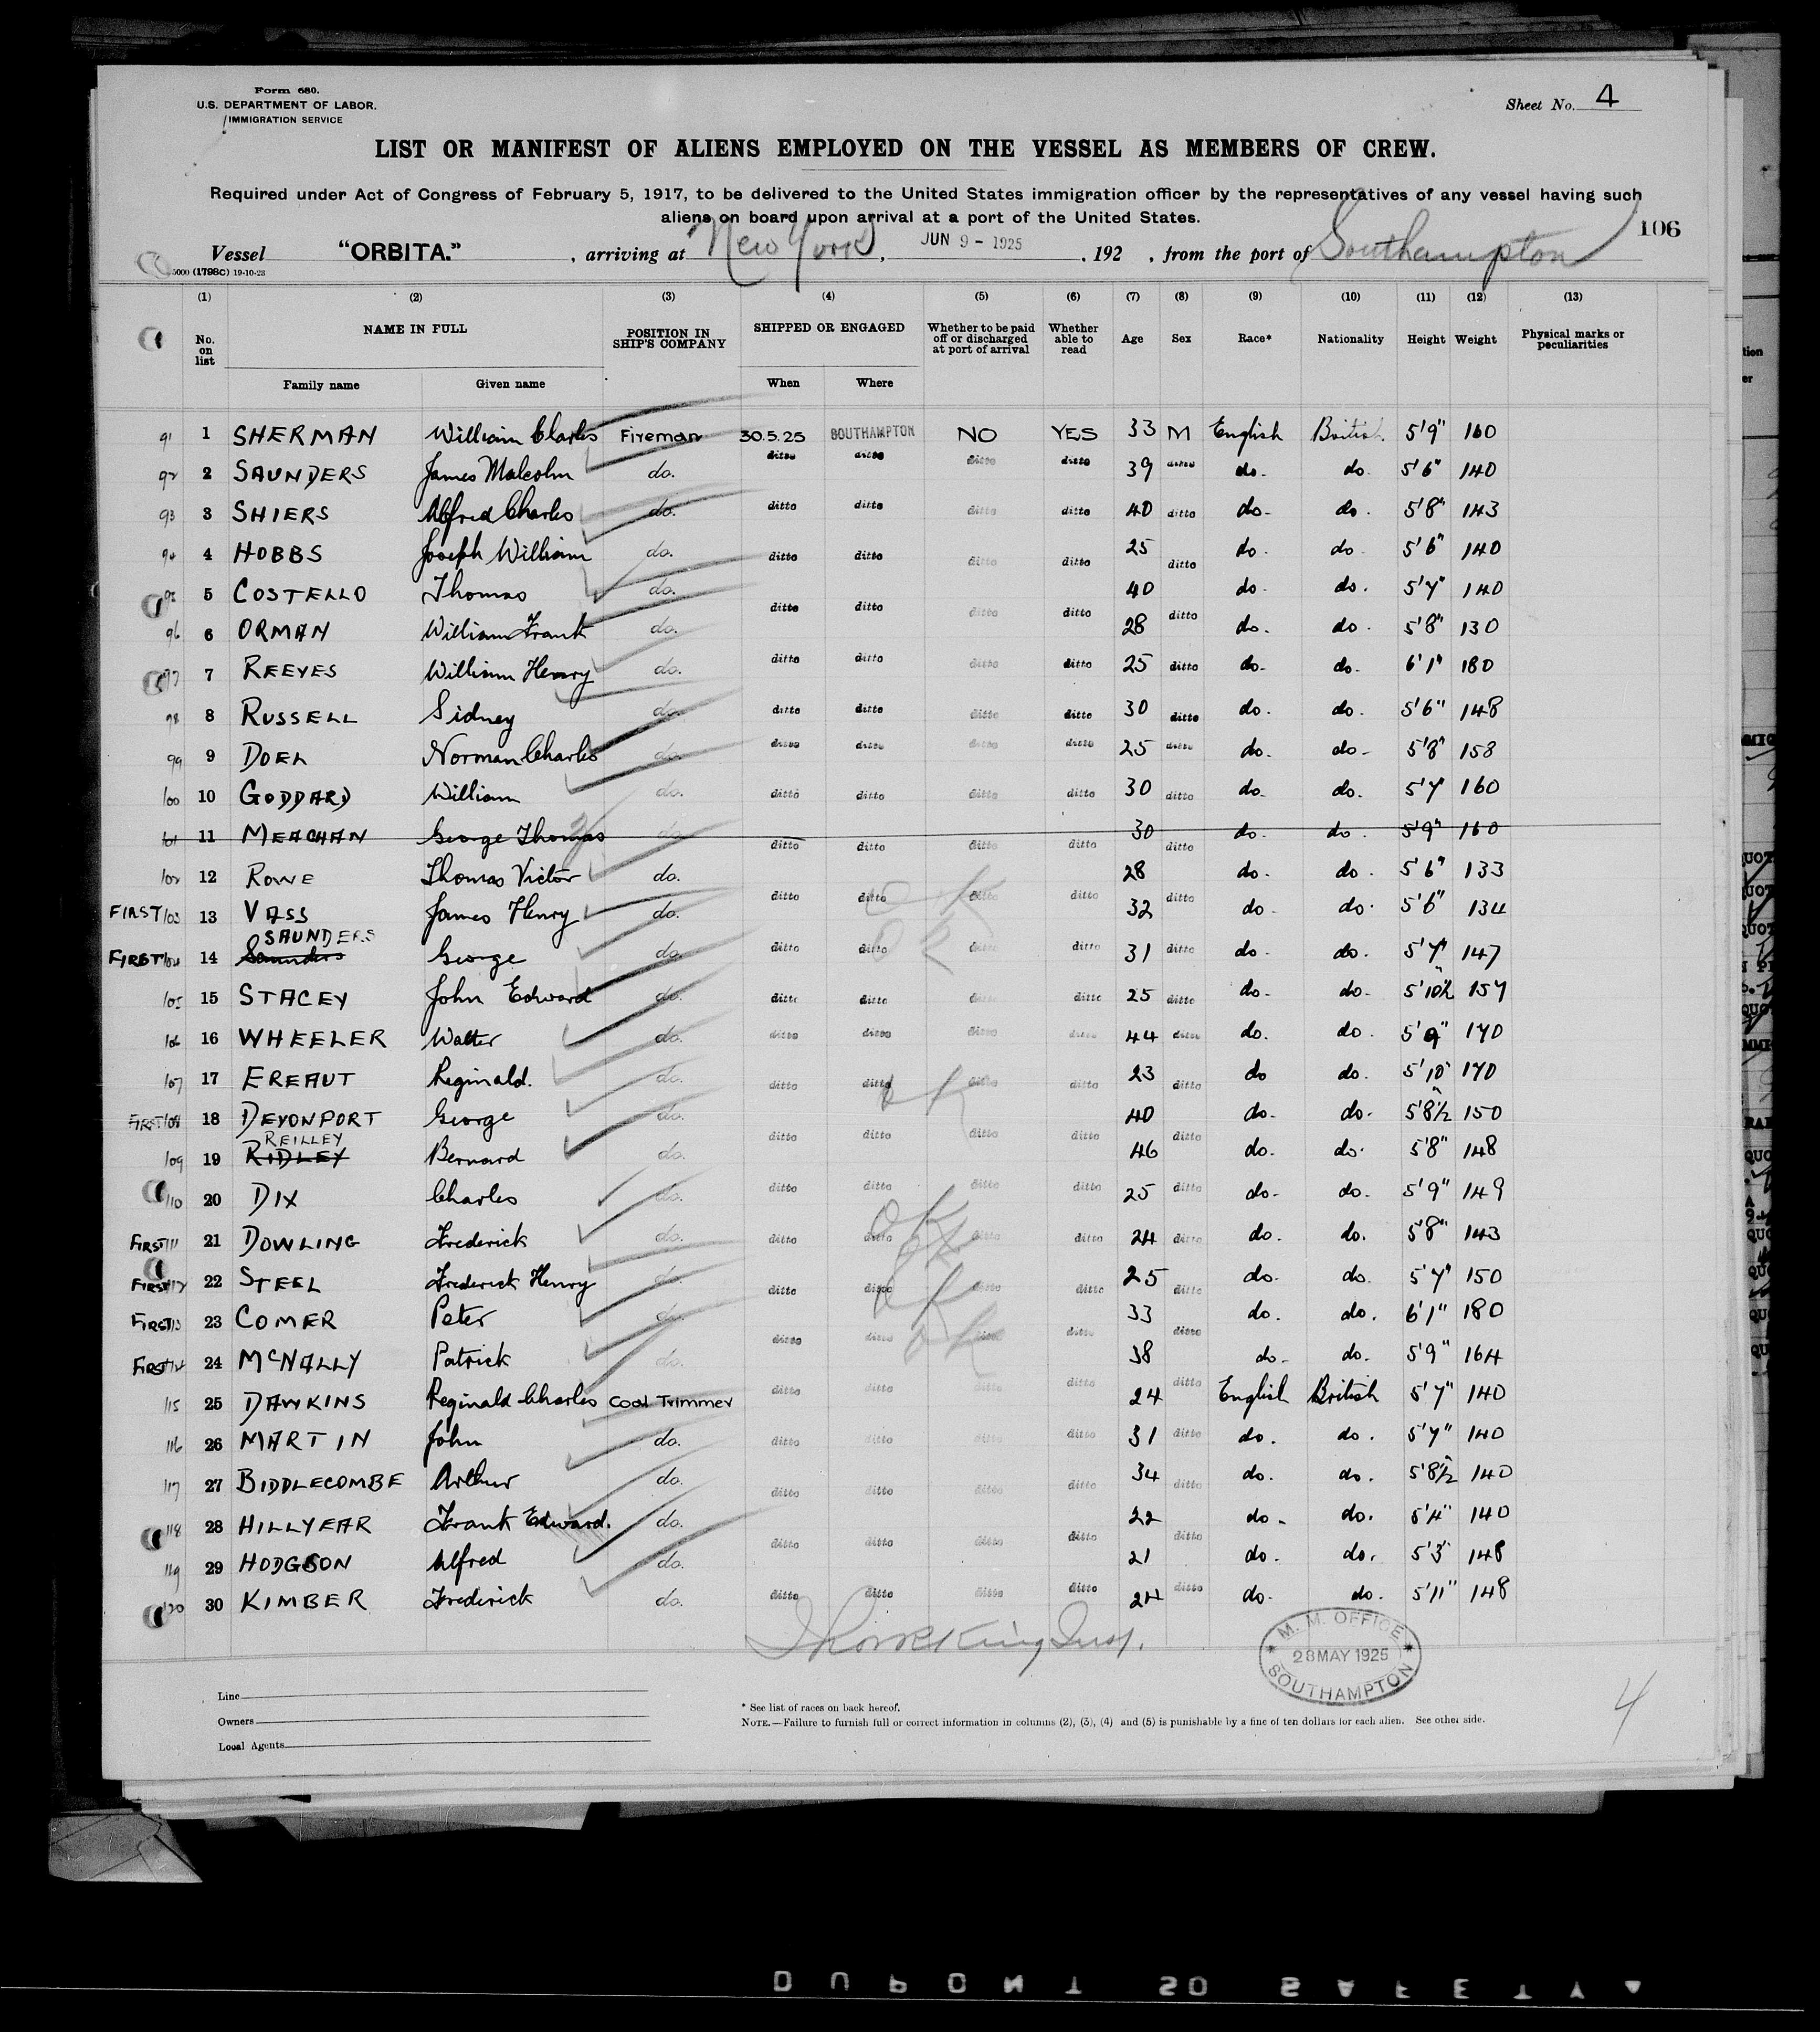 Form 680.
U.S. DEPARTMENT OF LABOR.
IMMIGRATION SERVICE
Sheet No. 4
LIST OR MANIFEST OF ALIENS EMPLOYED ON THE VESSEL AS MEMBERS OF CREW.
Required under Act of Congress of February 5, 1917, to be delivered to the United States immigration officer by the representatives of any vessel having such
aliens on board upon arrival at a port of the United States.
106
Vessel "ORBITA." , arriving at New York , JUN 9 - 1925 , 192 , from the port of Southampton
5000 (1798C) 19-10-23
(1) (2) (3) (4) (5) (6) (7) (8) (9) (10) (11) (12) (13)
No. on list NAME IN FULL POSITION IN SHIP'S COMPANY SHIPPED OR ENGAGED Whether to be paid off or discharged at port of arrival Whether able to read Age Sex Race* Nationality Height Weight Physical marks or peculiarities
Family name Given name When Where
91 1 SHERMAN William Charles Fireman 30.5.25 SOUTHAMPTON NO YES 33 M English British 5'9" 160
92 2 SAUNDERS James Malcolm do. ditto ditto ditto ditto 39 ditto do. do. 5'6" 140
93 3 SHIERS Alfred Charles do. ditto ditto ditto ditto 40 ditto do- do. 5'8" 143
94 4 HOBBS Joseph William do. ditto ditto ditto ditto 25 ditto do. do. 5'6" 140
95 5 COSTELLO Thomas do. ditto ditto ditto ditto 40 ditto do- do. 5'7" 140
96 6 ORMAN William Frank do. 28 do. do. 5'8" 130
97 7 REEVES William Henry do. ditto ditto ditto ditto 25 ditto do- do- 6'1" 180
98 8 RUSSELL Sidney do. ditto ditto ditto ditto 30 ditto do. do. 5'6" 148
99 9 DOEL Norman Charles do. ditto ditto ditto ditto 25 ditto do- do- 5'8" 158
100 10 GODDARD William do. ditto ditto ditto ditto 30 ditto do- do. 5'7" 160
101 11 MEACHAN George Thomas do. ditto ditto ditto ditto 30 ditto do. do. 5'9" 160
102 12 ROWE Thomas Victor do. 28 do. do. 5'6" 133
FIRST 103 13 VASS James Henry do. ditto ditto ditto ditto 32 ditto do- do. 5'6" 134
SAUNDERS
FIRST 104 14 Saunders George do. ditto ditto ditto ditto 31 ditto do. do. 5'7" 147
105 15 STACEY John Edward do. ditto ditto ditto ditto 25 ditto do- do- 5'10½ 157
106 16 WHEELER Walter do. ditto ditto ditto ditto 44 ditto do. do. 5'9" 170
107 17 EREAUT Reginald. do. ditto ditto ditto ditto 23 ditto do do. 5'10" 170
FIRST 108 18 DEVONPORT George do. 40 do. do. 5'8½ 150
REILLEY
109 19 RIDLEY Bernard do. ditto ditto ditto ditto 46 ditto do. do. 5'8" 148
110 20 DIX Charles do. ditto ditto ditto ditto 25 ditto do- do. 5'9" 149
FIRST 111 21 DOWLING Frederick do. ditto ditto ditto ditto 24 ditto do. do. 5'8" 143
FIRST 112 22 STEEL Frederick Henry do. ditto ditto ditto ditto 25 ditto do. do. 5'7" 150
FIRST 113 23 COMER Peter do. 33 do. do. 6'1" 180
FIRST 114 24 McNALLY Patrick do. ditto ditto ditto ditto 38 ditto do- do. 5'9" 164
115 25 DAWKINS Reginald Charles Coal Trimmer ditto ditto ditto ditto 24 ditto English British 5'7" 140
116 26 MARTIN John do. ditto ditto ditto ditto 31 ditto do. do. 5'7" 140
117 27 BIDDLECOMBE Arthur do. ditto ditto ditto ditto 34 ditto do. do. 5'8½ 140
118 28 HILLYEAR Frank Edward. do. 22 do- do. 5'4" 140
119 29 HODGSON Alfred do. ditto ditto ditto ditto 21 ditto do. do. 5'3" 148
120 30 KIMBER Frederick do. ditto ditto ditto ditto 24 ditto do- do. 5'11" 148
King Insp.
M. M. OFFICE
28 MAY 1925
SOUTHAMPTON
Line
Owners
Local Agents
* See list of races on back hereof.
NOTE.—Failure to furnish full or correct information in columns (2), (3), (4) and (5) is punishable by a fine of ten dollars for each alien. See other side.
4
DUPONT 50 SAFETY